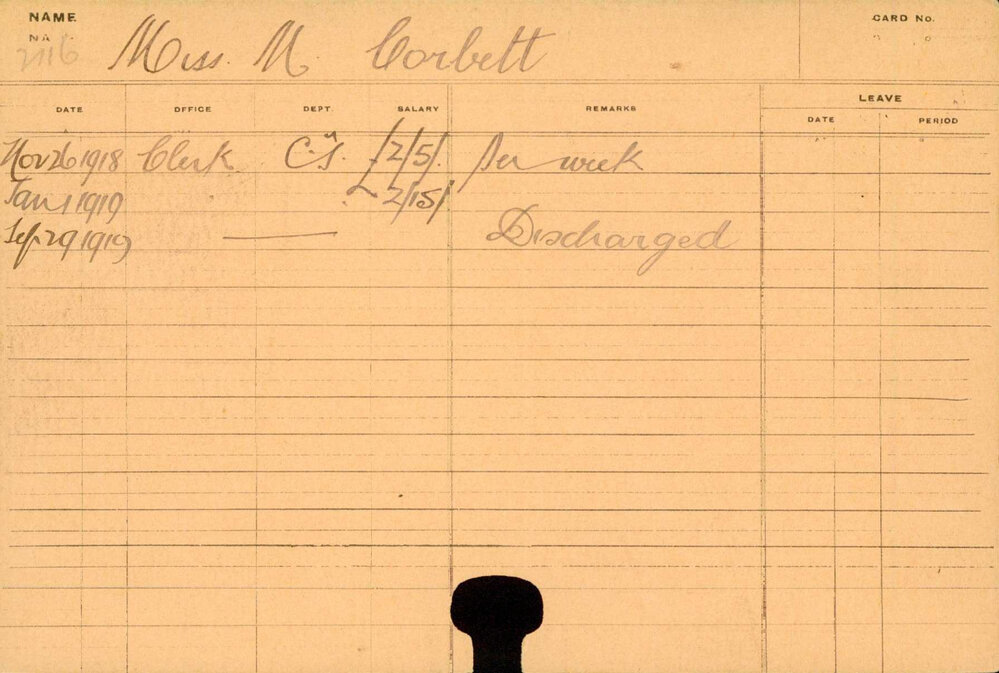 NAME. CARD No.
NA
2116 Miss. M. Corbett
DATE OFFICE DEPT. SALARY REMARKS LEAVE
DATE PERIOD
Nov 26 1918 Clerk £2/5/. Per week
Jan 1 1919 £2/15/
Sep 29 1919 — Discharged